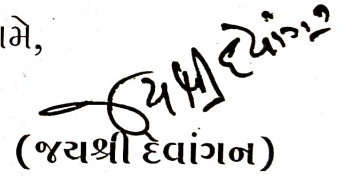 ામે,
જયશ્રી દેવાંગન
(જયશ્રી દેવાંગન)